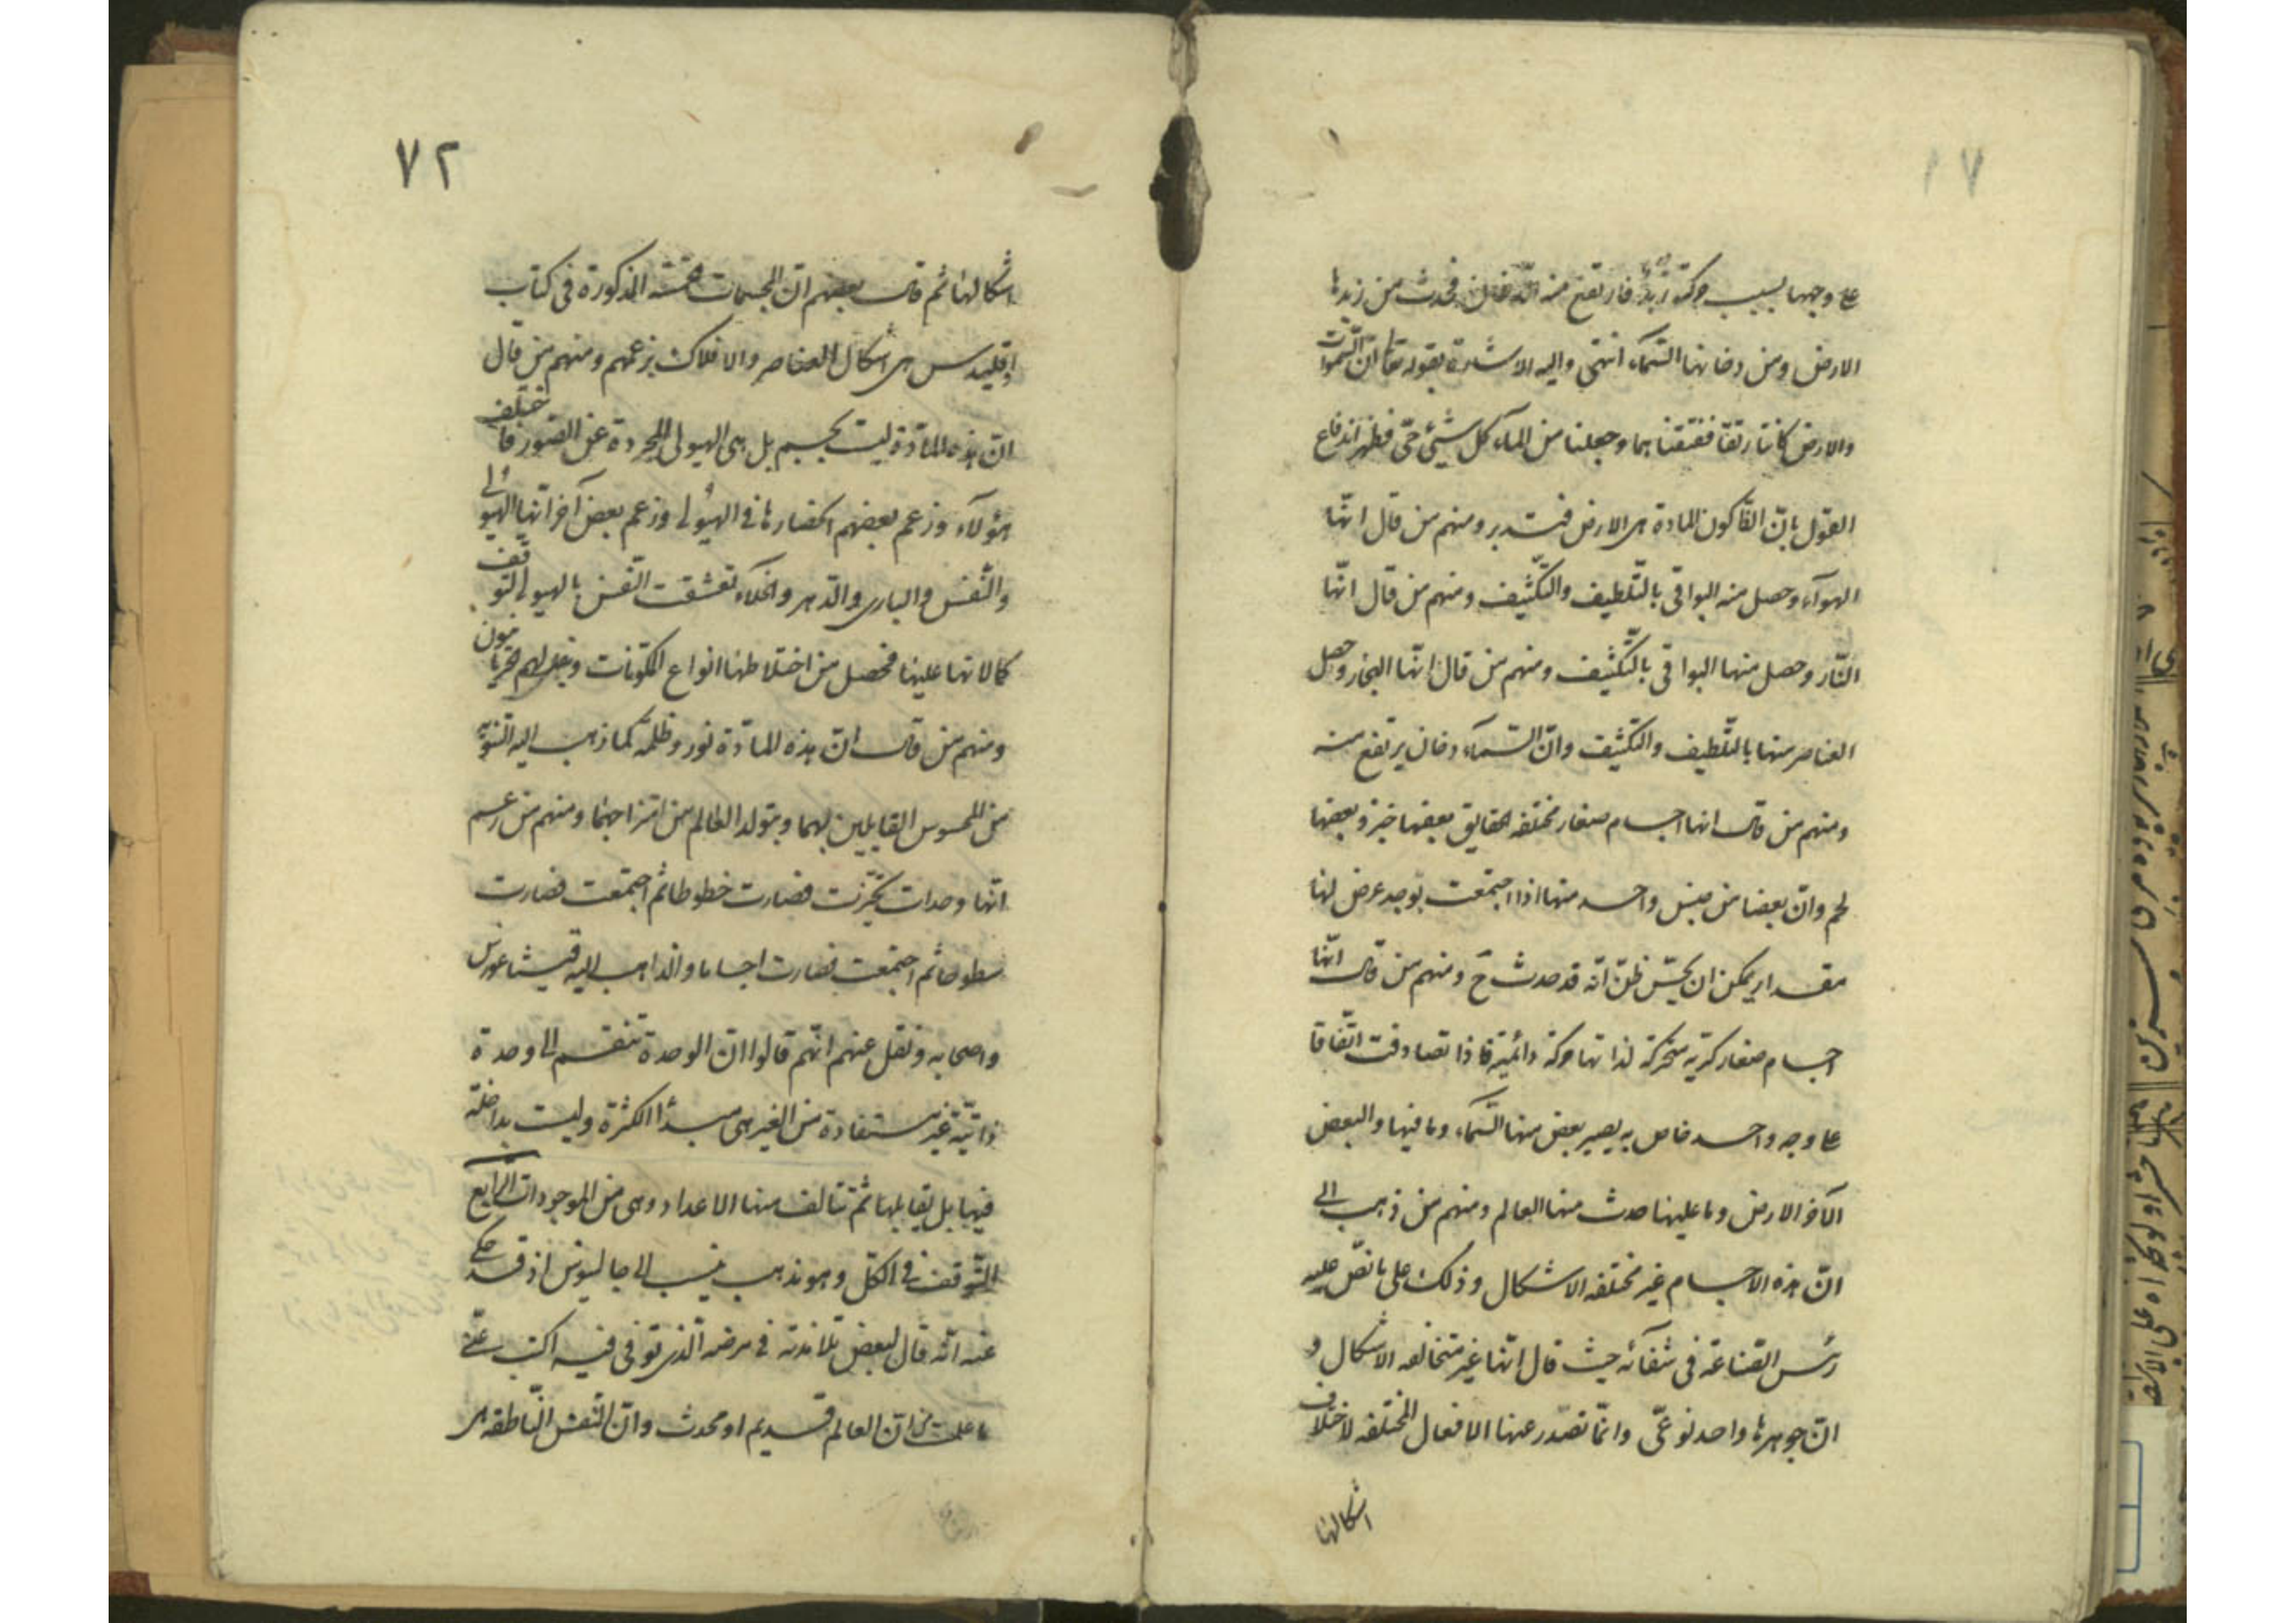 ٧١
علی وجهها بسبب حرکته زبد فارتفع منه الدخان فحدث من زبدها
الارض ومن دخانها السّماء انتهی والیه الاشارة بقوله تعا انّ السّموات
والارض کانتا رتقا ففتقناهما وجعلنا من الماء کل شیئ حیّ فظهر اندفاع
القول بانّ القا کون المادة هی الارض فتدبر ومنهم من قال انّها
الهوآء وحصل منه البواقی بالتّلطیف والتّکثیف ومنهم من قال انّها
النّار وحصل منها البواقی بالتّکثیف ومنهم من قال انّها البخار وحصل
العناصر منها بالتّلطیف والتّکثیف وانّ السّمآء دخان یرتفع منه
ومنهم من قال انها اجسام صغار مختلفه الحقایق بعضها خبز وبعضها
لحم وانّ بعضا من جنس واحد منها اذا اجتمعت بوجه عرض لها
مقدار یمکن ان یحسّ ظنّ انّه قد حدث ح ومنهم من قال انّها
اجسام صغار کریه متحرکة لذاتها حرکة دائمیّة فاذا تصادفت اتّفاقا
علی وجه واحد خاص به یصیر بعض منها السّماء وما فیها والبعض
الآخر الارض وما علیها حدث منها العالم ومنهم من ذهب الی
انّ هذه الاجسام غیر مختلفه الاشکال وذلک علی ما نصّ علیه
رئس الصّناعة فی شفآئه حیث قال انّها غیر متخالفه الاشکال و
انّ جوهرها واحد نوعیّ وانّما تصدر عنها الافعال المختلفه لاختلاف
اشکالها
٧٢
اشکالها ثم قال بعضهم انّ المجسمات الخمسة المذکورة فی کتاب
اقلیدس هی اشکال العناصر والافلاک بزعمهم ومنهم من قال
انّ هذه المادّة لیست بجسم بل هی الهیولی المجردة عن الصّور فاختلف
هؤلآء وزعم بعضهم انحصارها فی الهیولی وزعم بعض آخر انّها الهیولی
والنّفس والباری والدّهر والخلاء تعشقت النّفس بالهیولی لتوقف
کمالاتها علیها فحصل من اختلاطها انواع المکونات ویقال لهم حرنانیون
ومنهم من قال انّ هذه المادّة نور وظلمة کما ذهب الیه الثنویّة
من المجوس القایلین بهما وبتولد العالم من امتزاجهما ومنهم من زعم
انّها وحدات تحیّزت فصارت خطوطا ثم اجتمعت فصارت
سطوحا ثم اجتمعت فصارت اجساما والذاهب الیه فیثاغورس
واصحابه ونقل عنهم انّهم قالوا انّ الوحدة تنقسم الی وحدة
ذاتیّة غیر مستفادة من الغیر هی مبدأ الکثرة ولیست بداخلة
فیها بل یقابلها ثمّ تتالف منها الاعداد وهی من الموجودات الرّابع
التّوقف فی الکلّ وهو مذهب ینسب الی جالینوس اذ قد حکی
عنه انّه قال لبعض تلامذته فی مرضه الّذی توفی فیه اکتب عنّی
ما علمت من انّ العالم قدیم او محدث وانّ النّفس النّاطقه هی